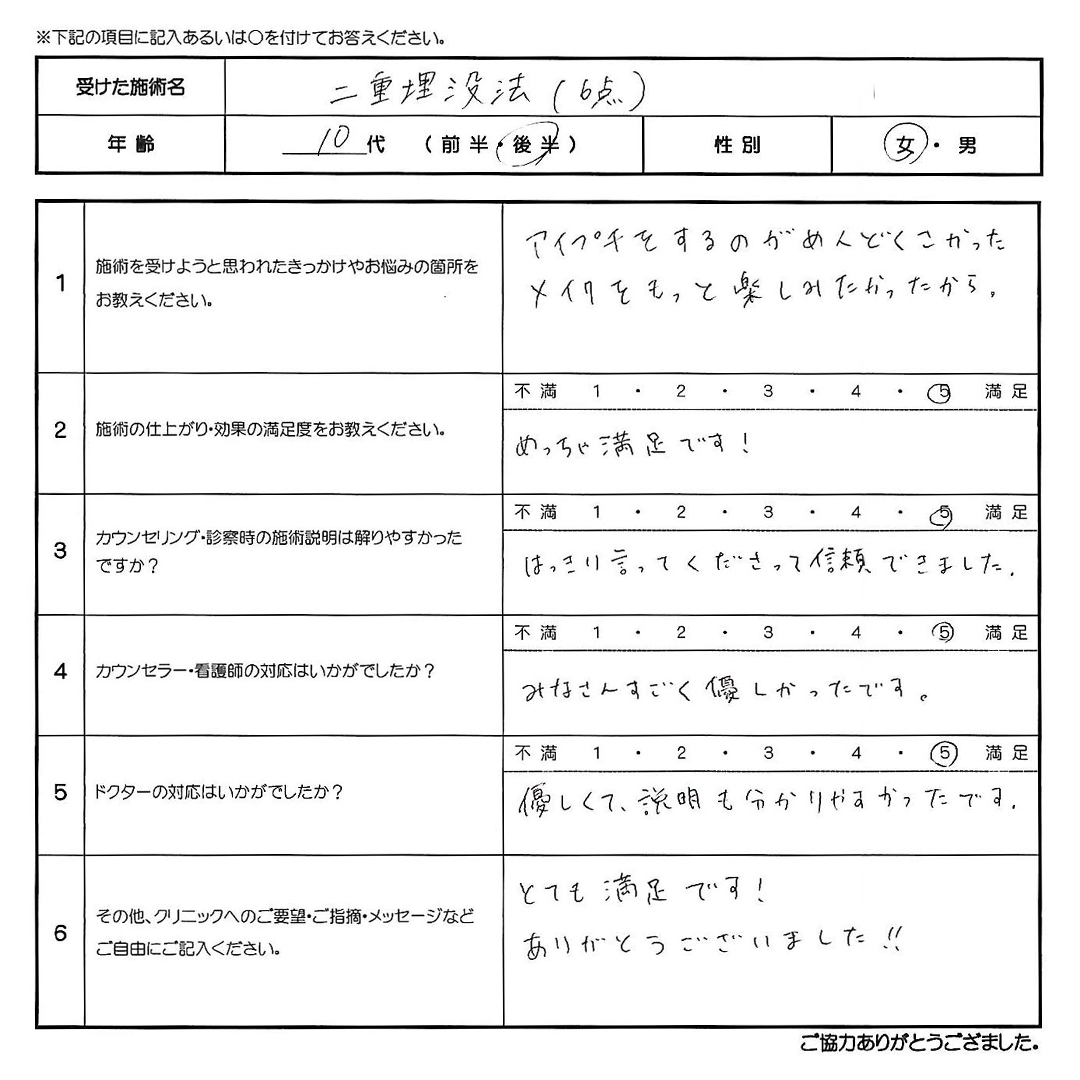 ※下記の項目に記入あるいは〇を付けてお答えください。
受けた施術名 二重埋没法(6点)
年齢 10代 (前半・後半) 性別 女・男
1 施術を受けようと思われたきっかけやお悩みの箇所を
お教えください。
アイプチをするのがめんどくさかった
メイクをもっと楽しみたかったから。
2 施術の仕上がり・効果の満足度をお教えください。
不満 1・2・3・4・5 満足
めっちゃ満足です!
3 カウンセリング・診察時の施術説明は解りやすかった
ですか?
不満 1・2・3・4・5 満足
はっきり言ってくださって信頼できました.
4 カウンセラー・看護師の対応はいかがでしたか?
不満 1・2・3・4・5 満足
みなさんすごく優しかったです。
5 ドクターの対応はいかがでしたか?
不満 1・2・3・4・5 満足
優しくて、説明も分かりやすかったです.
6 その他、クリニックへのご要望・ご指摘・メッセージなど
ご自由にご記入ください。
とても満足です!
ありがとうございました!!
ご協力ありがとうござました。